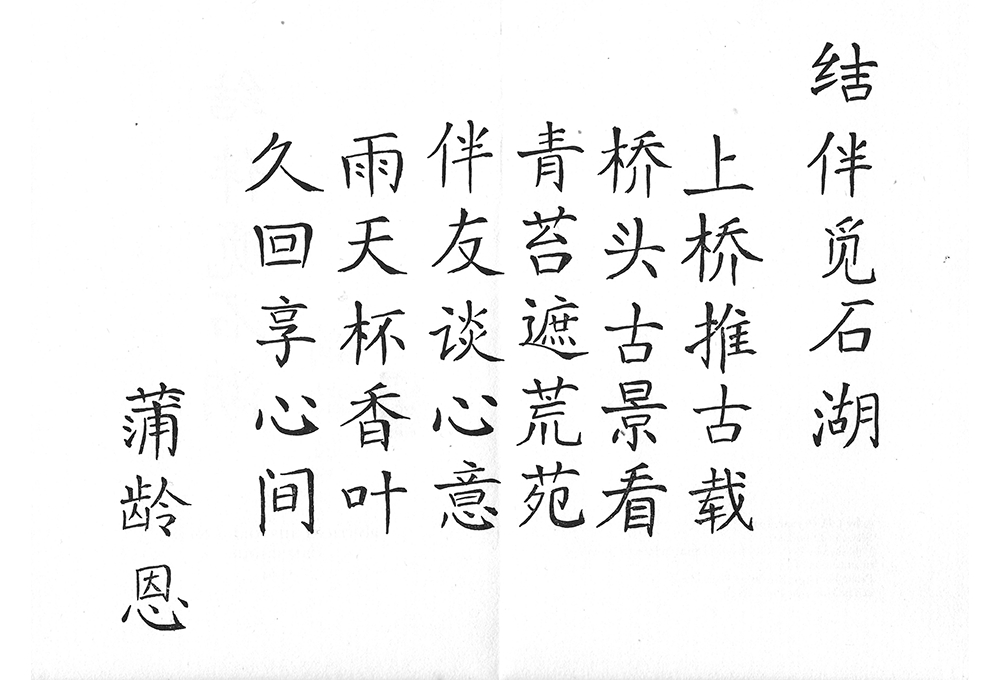 结伴觅石湖
上桥推古载
桥头古景看
青苔遮荒苑
伴友谈心意
雨天杯香叶
久回享心间
蒲龄恩